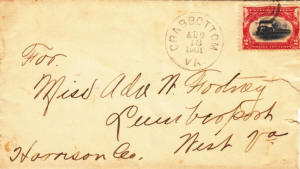 CRABBOTTOM
AUG
18
1901
VA.
For.
Miss Ada N
Lumberport
Harrison Co. West Va